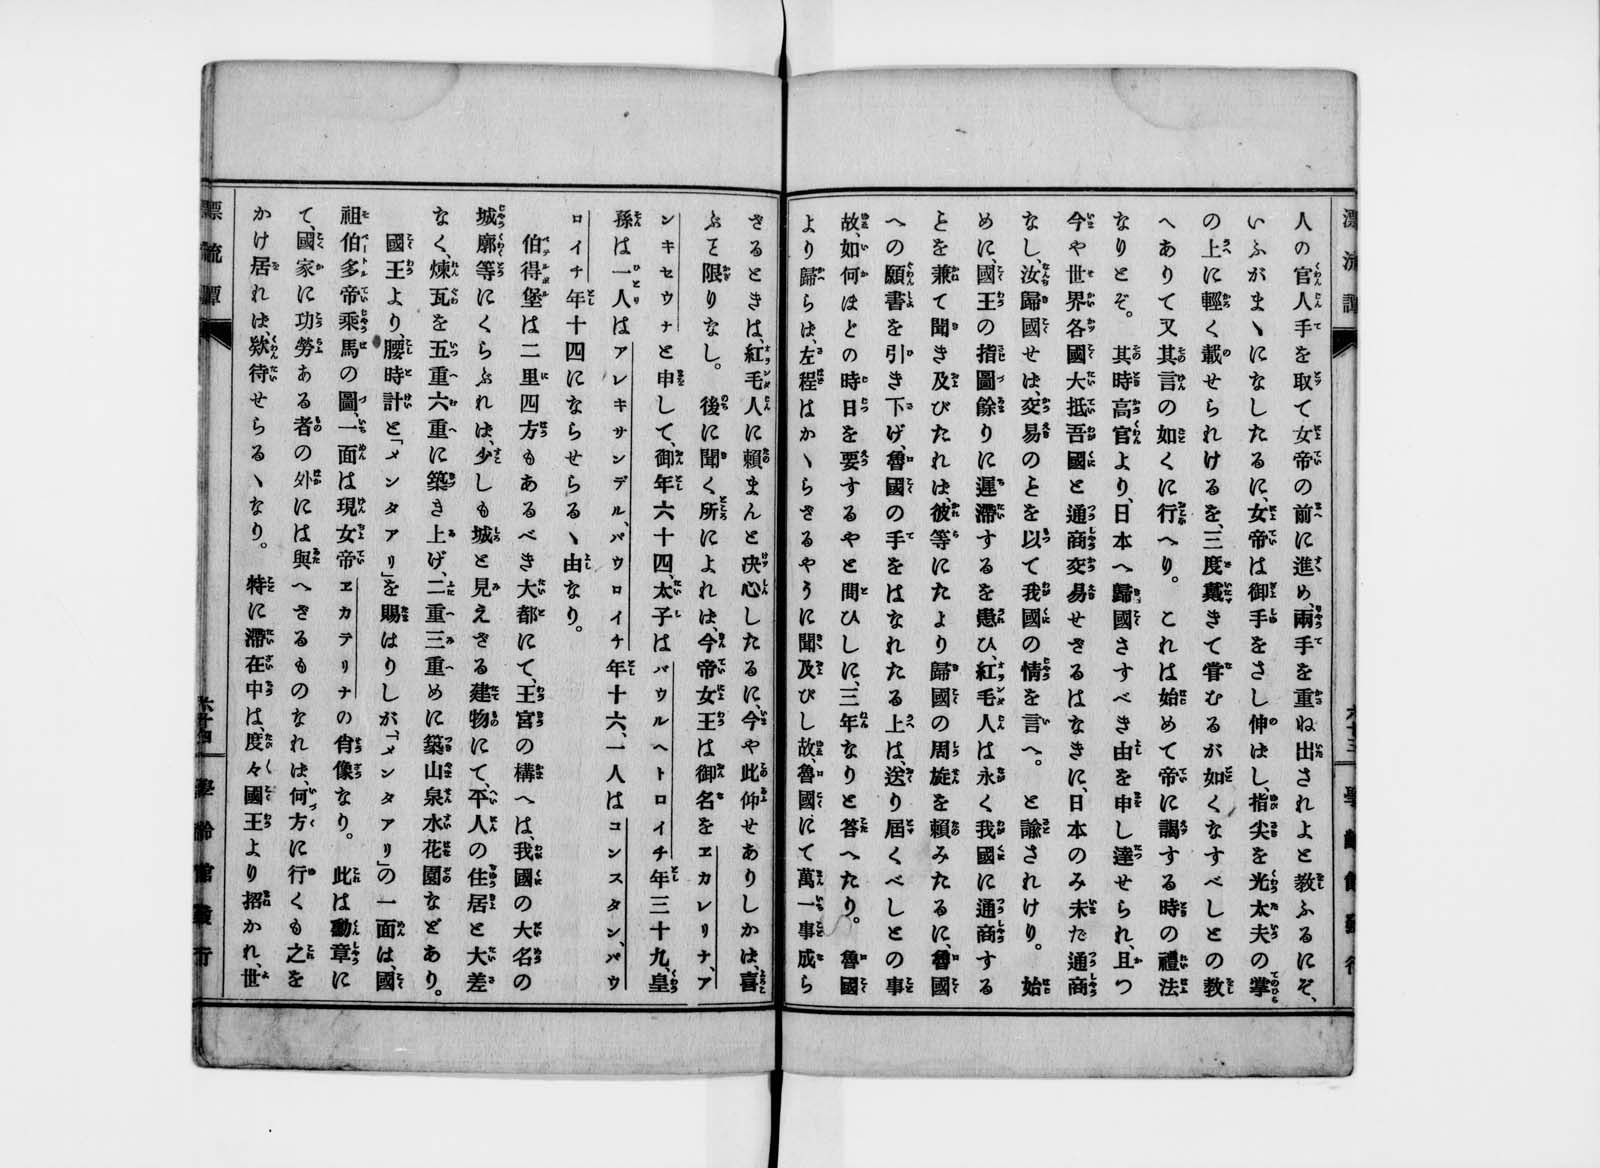 漂流譚
人の官人手を取て女帝の前に進め、兩手を重ね出されよと敎ふるにぞ、
いふがまゝになしたるに、女帝は御手をさし伸はし、指尖を光太夫の掌
の上に輕く載せられけるを、三度戴きて甞むるが如くなすべしとの敎
へありて又其言の如くに行へり。 これは始めて帝に謁する時の禮法
なりとぞ。 其時高官より、日本へ歸國さすべき由を申し達せられ、且つ
今や世界各國大抵吾國と通商交易せざるはなきに、日本のみ未だ通商
なし、汝歸國せは、交易のとを以て我國の情を言へ。 と諭されけり。 始
めに、國王の指圖餘りに遲滯するを患ひ、紅毛人は永く我國に通商する
とを兼て聞き及びたれは、彼等にたより歸國の周旋を賴みたるに、魯國
への願書を引き下げ、魯國の手をはなれたる上は、送り屆くべしとの事
故、如何ほどの時日を要するやと問ひしに、三年なりと答へたり。 魯國
より歸らは、左程はかゝらさるやうに聞及びし故、魯國にて萬一事成ら
六十三
さるときは、紅毛人に賴まんと决心したるに、今や此仰せありしかは、喜
ぶと限りなし。 後に聞く所によれは、今帝女王は御名をヱカレリナ、ア
ンキセウナと申して、御年六十四、太子はパウルヘトロイチ年三十九、皇
孫は一人はアレキサンデル、パウロイチ年十六、一人はコンスタン、パウ
ロイチ年十四にならせらるゝ由なり。
伯得堡は二里四方もあるべき大都にて、王宮の構へは、我國の大名の
城廓等にくらぶれは、少しも城と見えさる建物にて、平人の住居と大差
なく、煉瓦を五重六重に築き上げ、二重三重めに築山泉水花園などあり。
國王より、腰時計と「メンタアリ」を賜はりしが、「メンタアリ」の一面は、國
祖伯多帝乘馬の圖、一面は現女帝ヱカテリナの肖像なり。 此は勳章に
て、國家に功勞ある者の外には與へさるものなれは、何方に行くも之を
かけ居れは、欵待せらるゝなり。 特に滯在中は度々國王より招かれ、世
漂流譚
六十四
學齡館發行